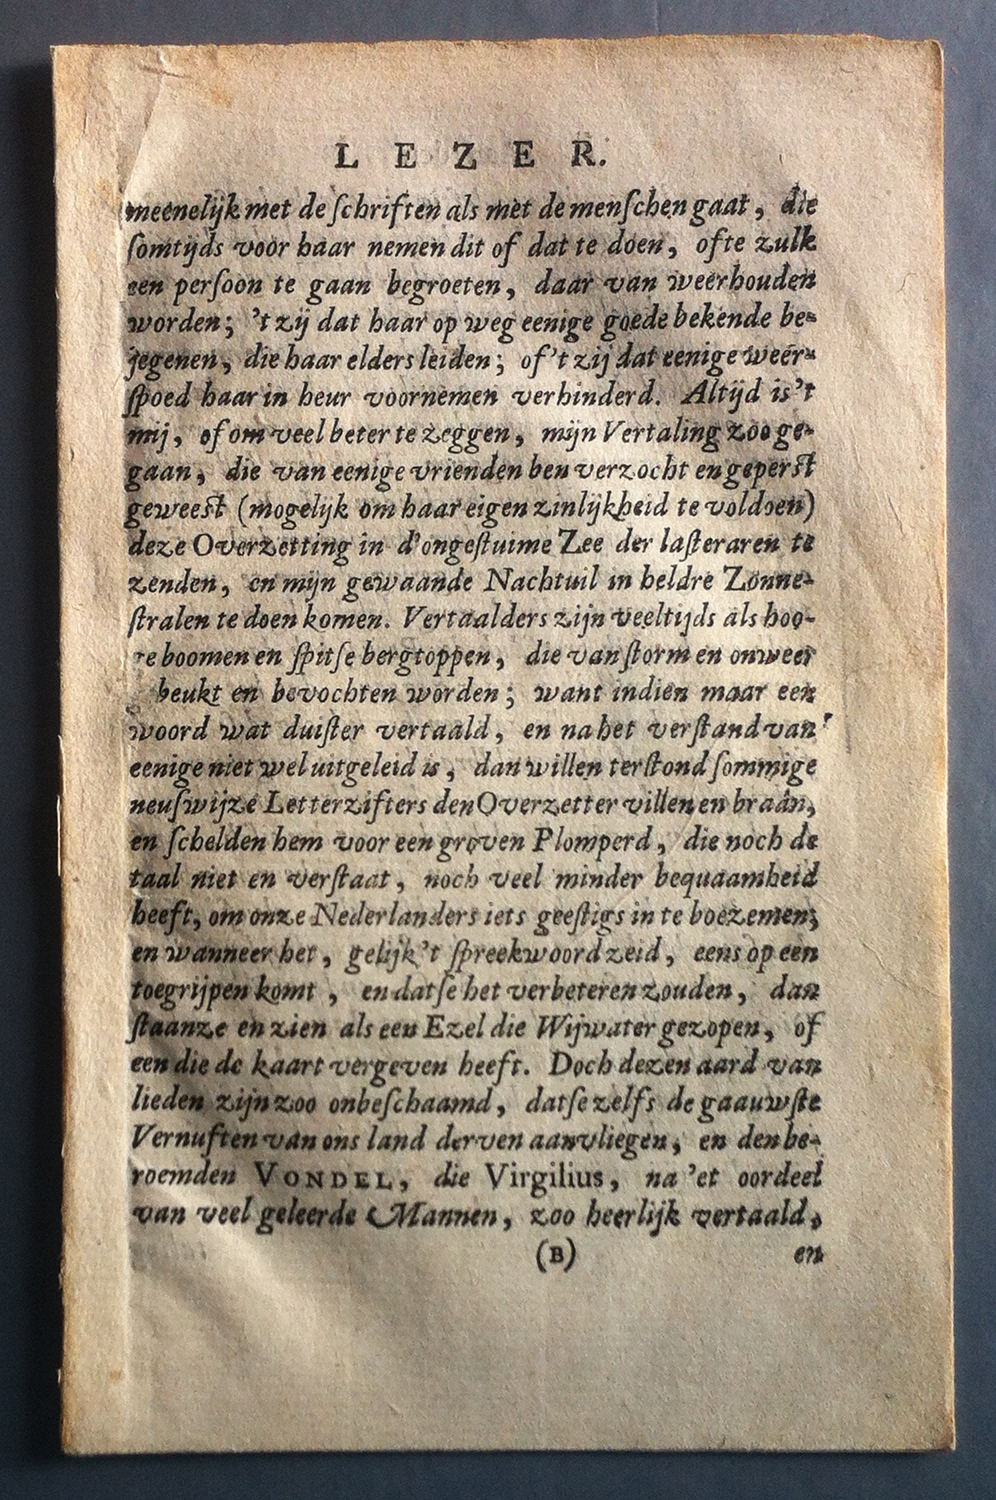 LEZER.
meenelijk met de ſchriften als met de menſchen gaat, die
ſomtijds voor haar nemen dit of dat te doen, ofte zulk
een perſoon te gaan begroeten, daar van weerhouden
worden; 't zij dat haar op weg eenige goede bekende be-
jegenen, die haar elders leiden; of 't zij dat eenige weêr-
ſpoed haar in heur voornemen verhinderd. Altijd is 't
mij, of om veel beter te zeggen, mijn Vertaling zoo ge-
gaan, die van eenige vrienden ben verzocht en geperſt
geweeſt (mogelijk om haar eigen zinlijkheid te voldoen)
deze Overzetting in d'ongeſtuime Zee der laſteraren te
zenden, en mijn gewaande Nachtuil in heldre Zonne-
ſtralen te doen komen. Vertaalders zijn veeltijds als hoo-
ge boomen en ſpitſe bergtoppen, die van ſtorm en onweer
beukt en bevochten worden; want indien maar een
woord wat duiſter vertaald, en na het verſtand van
eenige niet wel uitgeleid is, dan willen terſtond ſommige
neuſwijze Letterzifters den Overzetter villen en braân,
en ſchelden hem voor een groven Plomperd, die noch de
taal niet en verſtaat, noch veel minder bequaamheid
heeft, om onze Nederlanders iets geeſtigs in te boezemen;
en wanneer het, gelijk 't ſpreekwoord zeid, eens op een
toegrijpen komt, en datſe het verbeteren zouden, dan
ſtaanze en zien als een Ezel die Wijwater gezopen, of
een die de kaart vergeven heeft. Doch dezen aard van
lieden zijn zoo onbeſchaamd, datſe zelfs de gaauwſte
Vernuften van ons land derven aanvliegen, en den be-
roemden VONDEL, die Virgilius, na 'et oordeel
van veel geleerde Mannen, zoo heerlijk vertaald,
(B) en